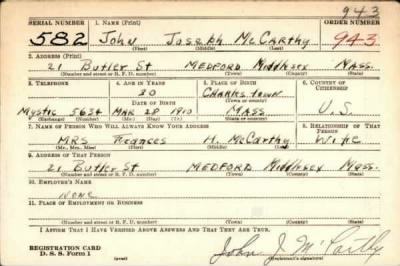 943
SERIAL NUMBER 1. NAME (Print) ORDER NUMBER
582 John Joseph McCarthy 943
(First) (Middle) (Last)
2. ADDRESS (Print)
21 Butler St MEDFORD Middlesex MASS.
(Number and street or R. F. D. number) (Town) (County) (State)
3. TELEPHONE 4. AGE IN YEARS 5. PLACE OF BIRTH 6. COUNTRY OF CITIZENSHIP
30 Charlestown
DATE OF BIRTH (Town or county)
Mystic 5634 MAR 28 1910 MASS U.S.
(Exchange) (Number) (Mo.) (Day) (Yr.) (State or country)
7. NAME OF PERSON WHO WILL ALWAYS KNOW YOUR ADDRESS 8. RELATIONSHIP OF THAT PERSON
MRS Frances H. McCarthy Wife
(Mr., Mrs., Miss) (First) (Middle) (Last)
9. ADDRESS OF THAT PERSON
21 Butler St MEDFORD Middlesex Mass.
(Number and street or R. F. D. number) (Town) (County) (State)
10. EMPLOYER'S NAME
None
11. PLACE OF EMPLOYMENT OR BUSINESS
(Number and street or R. F. D. number) (Town) (County) (State)
I AFFIRM THAT I HAVE VERIFIED ABOVE ANSWERS AND THAT THEY ARE TRUE.
REGISTRATION CARD
D. S. S. Form 1 John J McCarthy
(Registrant's signature)